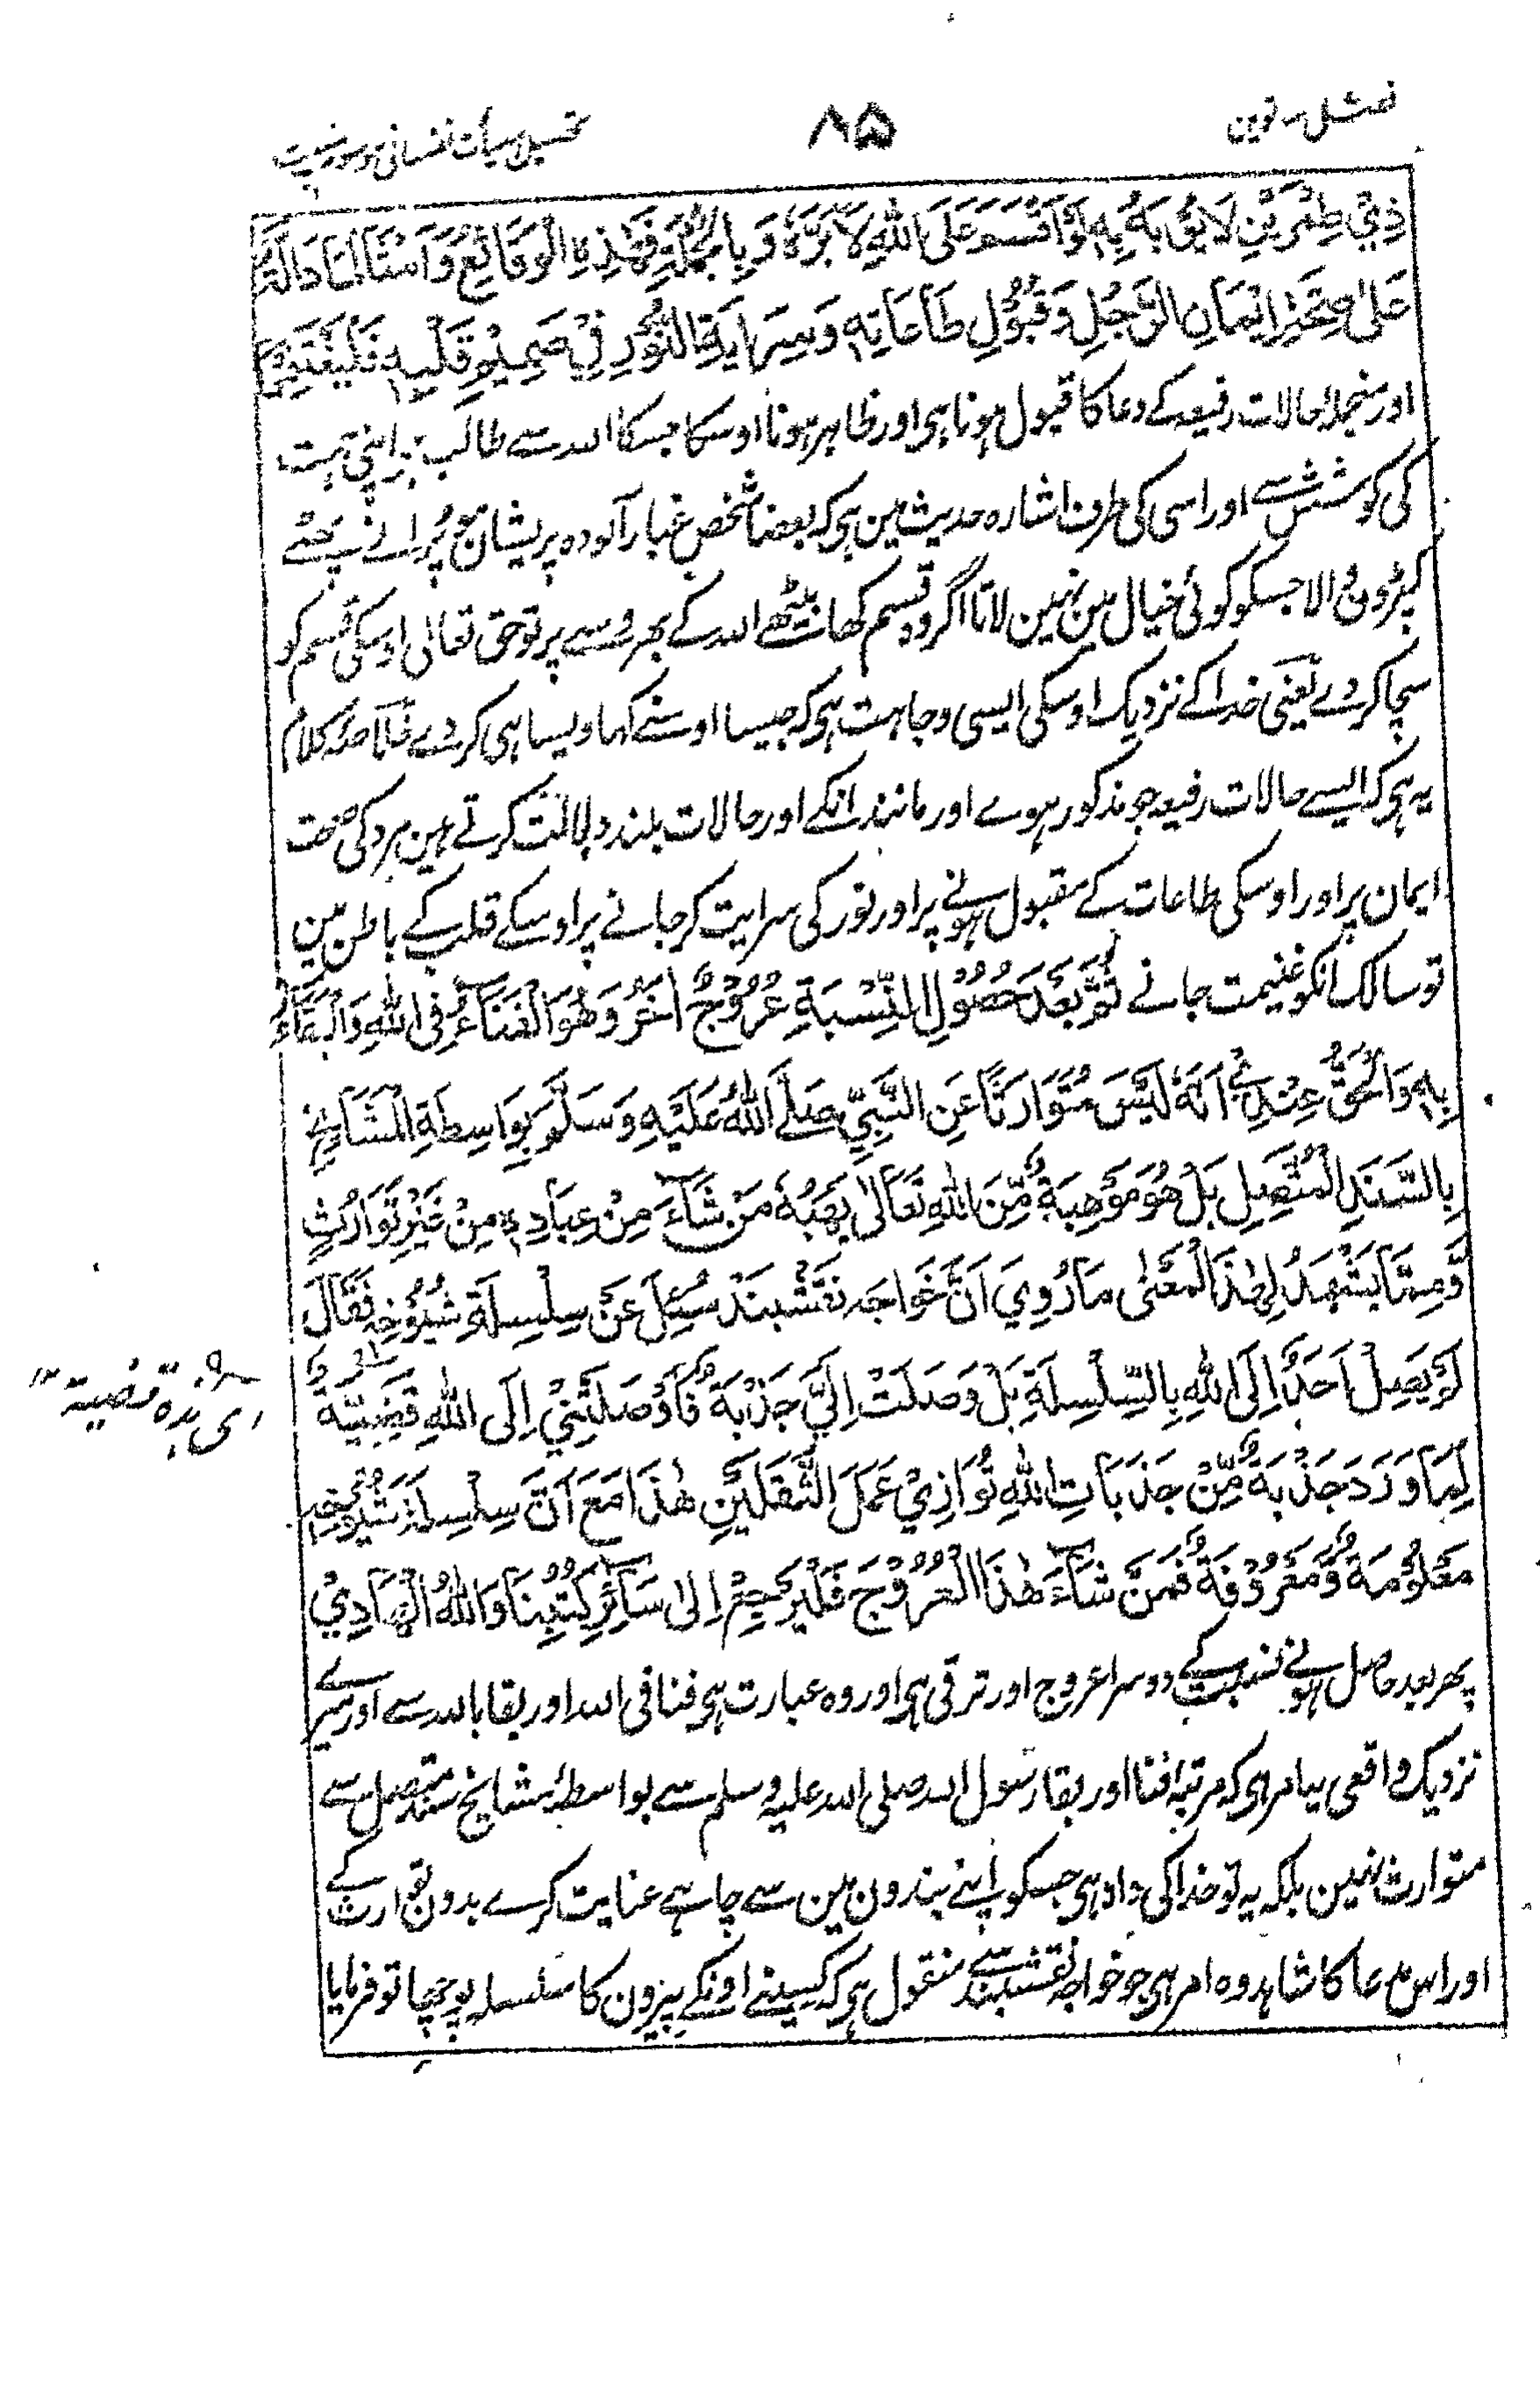 ۸۵
ذِيْ طِمْرَيْنِ لَا يُؤْبَهُ بِهٖ لَوْ اَقْسَمَ عَلَى اللهِ لَاَبَرَّهٗ وَبِالْجُمْلَةِ فَهٰذِهِ الْوَقَائِعُ وَاَمْثَالُهَا دَالَّةٌ
عَلٰى صِحَّةِ اِيْمَانِ الرَّجُلِ وَقُبُوْلِ طَاعَاتِهٖ وَسِرَايَةِ النُّوْرِ فِيْ صَمِيْمِ قَلْبِهٖ فَلْيَغْتَنِمْ
اور منجملہ حالات رفیعہ کے دعا کا قبول ہونا ہی اور ظاہر ہونا اوسکا جسکا اللہ سے طالب ہے اپنی ہمت
کی کوشش سے اور اسی کی طرف اشارہ حدیث مین ہی کہ بعضا شخص غبار آلودہ پریشان مو پرانے پھٹے
کپڑون والا جسکو کوئی خیال مین نہین لاتا اگر وہ قسم کھا بیٹھے اللہ کے بھروسے پر تو حق تعالی اوسکی قسم کو
سچا کر دے یعنی خدا کے نزدیک اوسکی ایسی وجاہت ہی کہ جیسا اوسنے کہا ویسا ہی کر دے خلاصۂ کلام
یہ ہی کہ ایسے حالات رفیعہ جو مذکور ہوے اور مانند انکے اور حالات بلند دلالت کرتے ہین مرد کی صحت
ایمان پر اور اوسکی طاعات کے مقبول ہونے پر اور نور کی سرایت کر جانے پر اوسکے قلب کے باطن مین
تو سالک انکو غنیمت جانے ثُمَّ بَعْدَ حُصُوْلِ النِّسْبَةِ عُرُوْجٌ اٰخَرُ وَهُوَ الْفَنَاءُ فِى اللهِ وَالْبَقَاءُ
بِهٖ وَالْحَقُّ عِنْدِيْ اَنَّهٗ لَيْسَ مُتَوَارَثًا عَنِ النَّبِيِّ صَلَّى اللهُ عَلَيْهِ وَسَلَّمَ بِوَاسِطَةِ الْمَشَايِخِ
بِالسَّنَدِ الْمُتَّصِلِ بَلْ هُوَ مَوْهِبَةٌ مِّنَ اللهِ تَعَالٰى يَهَبُهٗ مَنْ شَآءَ مِنْ عِبَادِهٖ مِنْ غَيْرِ تَوَارُثٍ
وَّمِمَّا يَشْهَدُ لِهٰذَا الْمَعْنٰى مَا رُوِيَ اَنَّ خَوَاجَه نَقْشْبَنْدْ سُئِلَ عَنْ سِلْسِلَةِ شُيُوْخِهٖ فَقَالَ
لَمْ يَصِلْ اَحَدٌ اِلَى اللهِ بِالسِّلْسِلَةِ بَلْ وَصَلَتْ اِلَيَّ جَذْبَةٌ فَاَوْصَلَتْنِيْ اِلَى اللهِ قَضِيَّةٌ
ای ہذہ قضیۃ ۱۲
لِمَا وَرَدَ جَذْبَةٌ مِّنْ جَذَبَاتِ اللهِ تُوَازِيْ عَمَلَ الثَّقَلَيْنِ هٰذَا مَعَ اَنَّ سِلْسِلَةَ شُيُوْخِهٖ
مَعْلُوْمَةٌ وَّمَعْرُوْفَةٌ فَمَنْ شَآءَ هٰذَا الْعُرُوْجَ فَلْيَرْجِعْ اِلٰى سَآئِرِ كُتُبِنَا وَاللهُ الْهَادِيْ
پھر بعد حاصل ہونے نسبت کے دوسرا عروج اور ترقی ہی اور وہ عبارت ہی فنا فی اللہ اور بقا باللہ سے اور میرے
نزدیک واقعی یہ امر ہی کہ مرتبۂ فنا اور بقا رسول اللہ صلی اللہ علیہ وسلم سے بواسطۂ مشایخ سند متصل سے
متوارث نہین بلکہ یہ تو خدا کی داد ہی جسکو اپنے بندون مین سے چاہے عنایت کرے بدون توارث کے
اور اس مدعا کا شاہد وہ امر ہی جو خواجہ نقشبند سے منقول ہی کہ کسینے اونکے پیرون کا سلسلہ پوچھا تو فرمایا